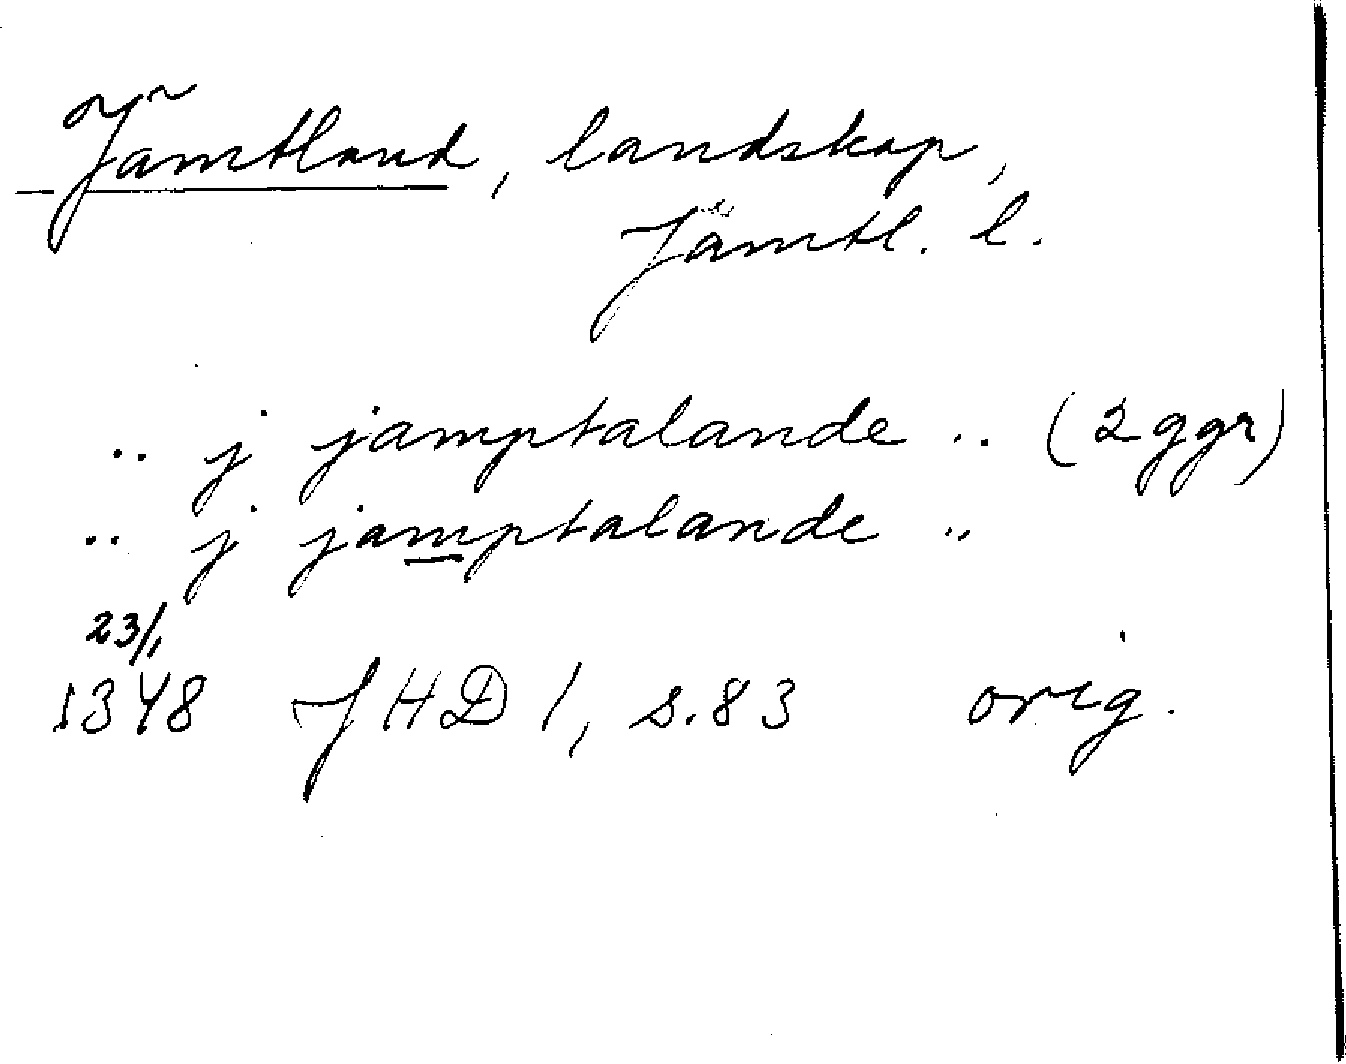 Jämtland, landskap,
Jämtl. l.
.. j jamptalande .. (2 ggr)
.. j jamptalande ..
23/1
1348 JHD 1, s. 83 orig.